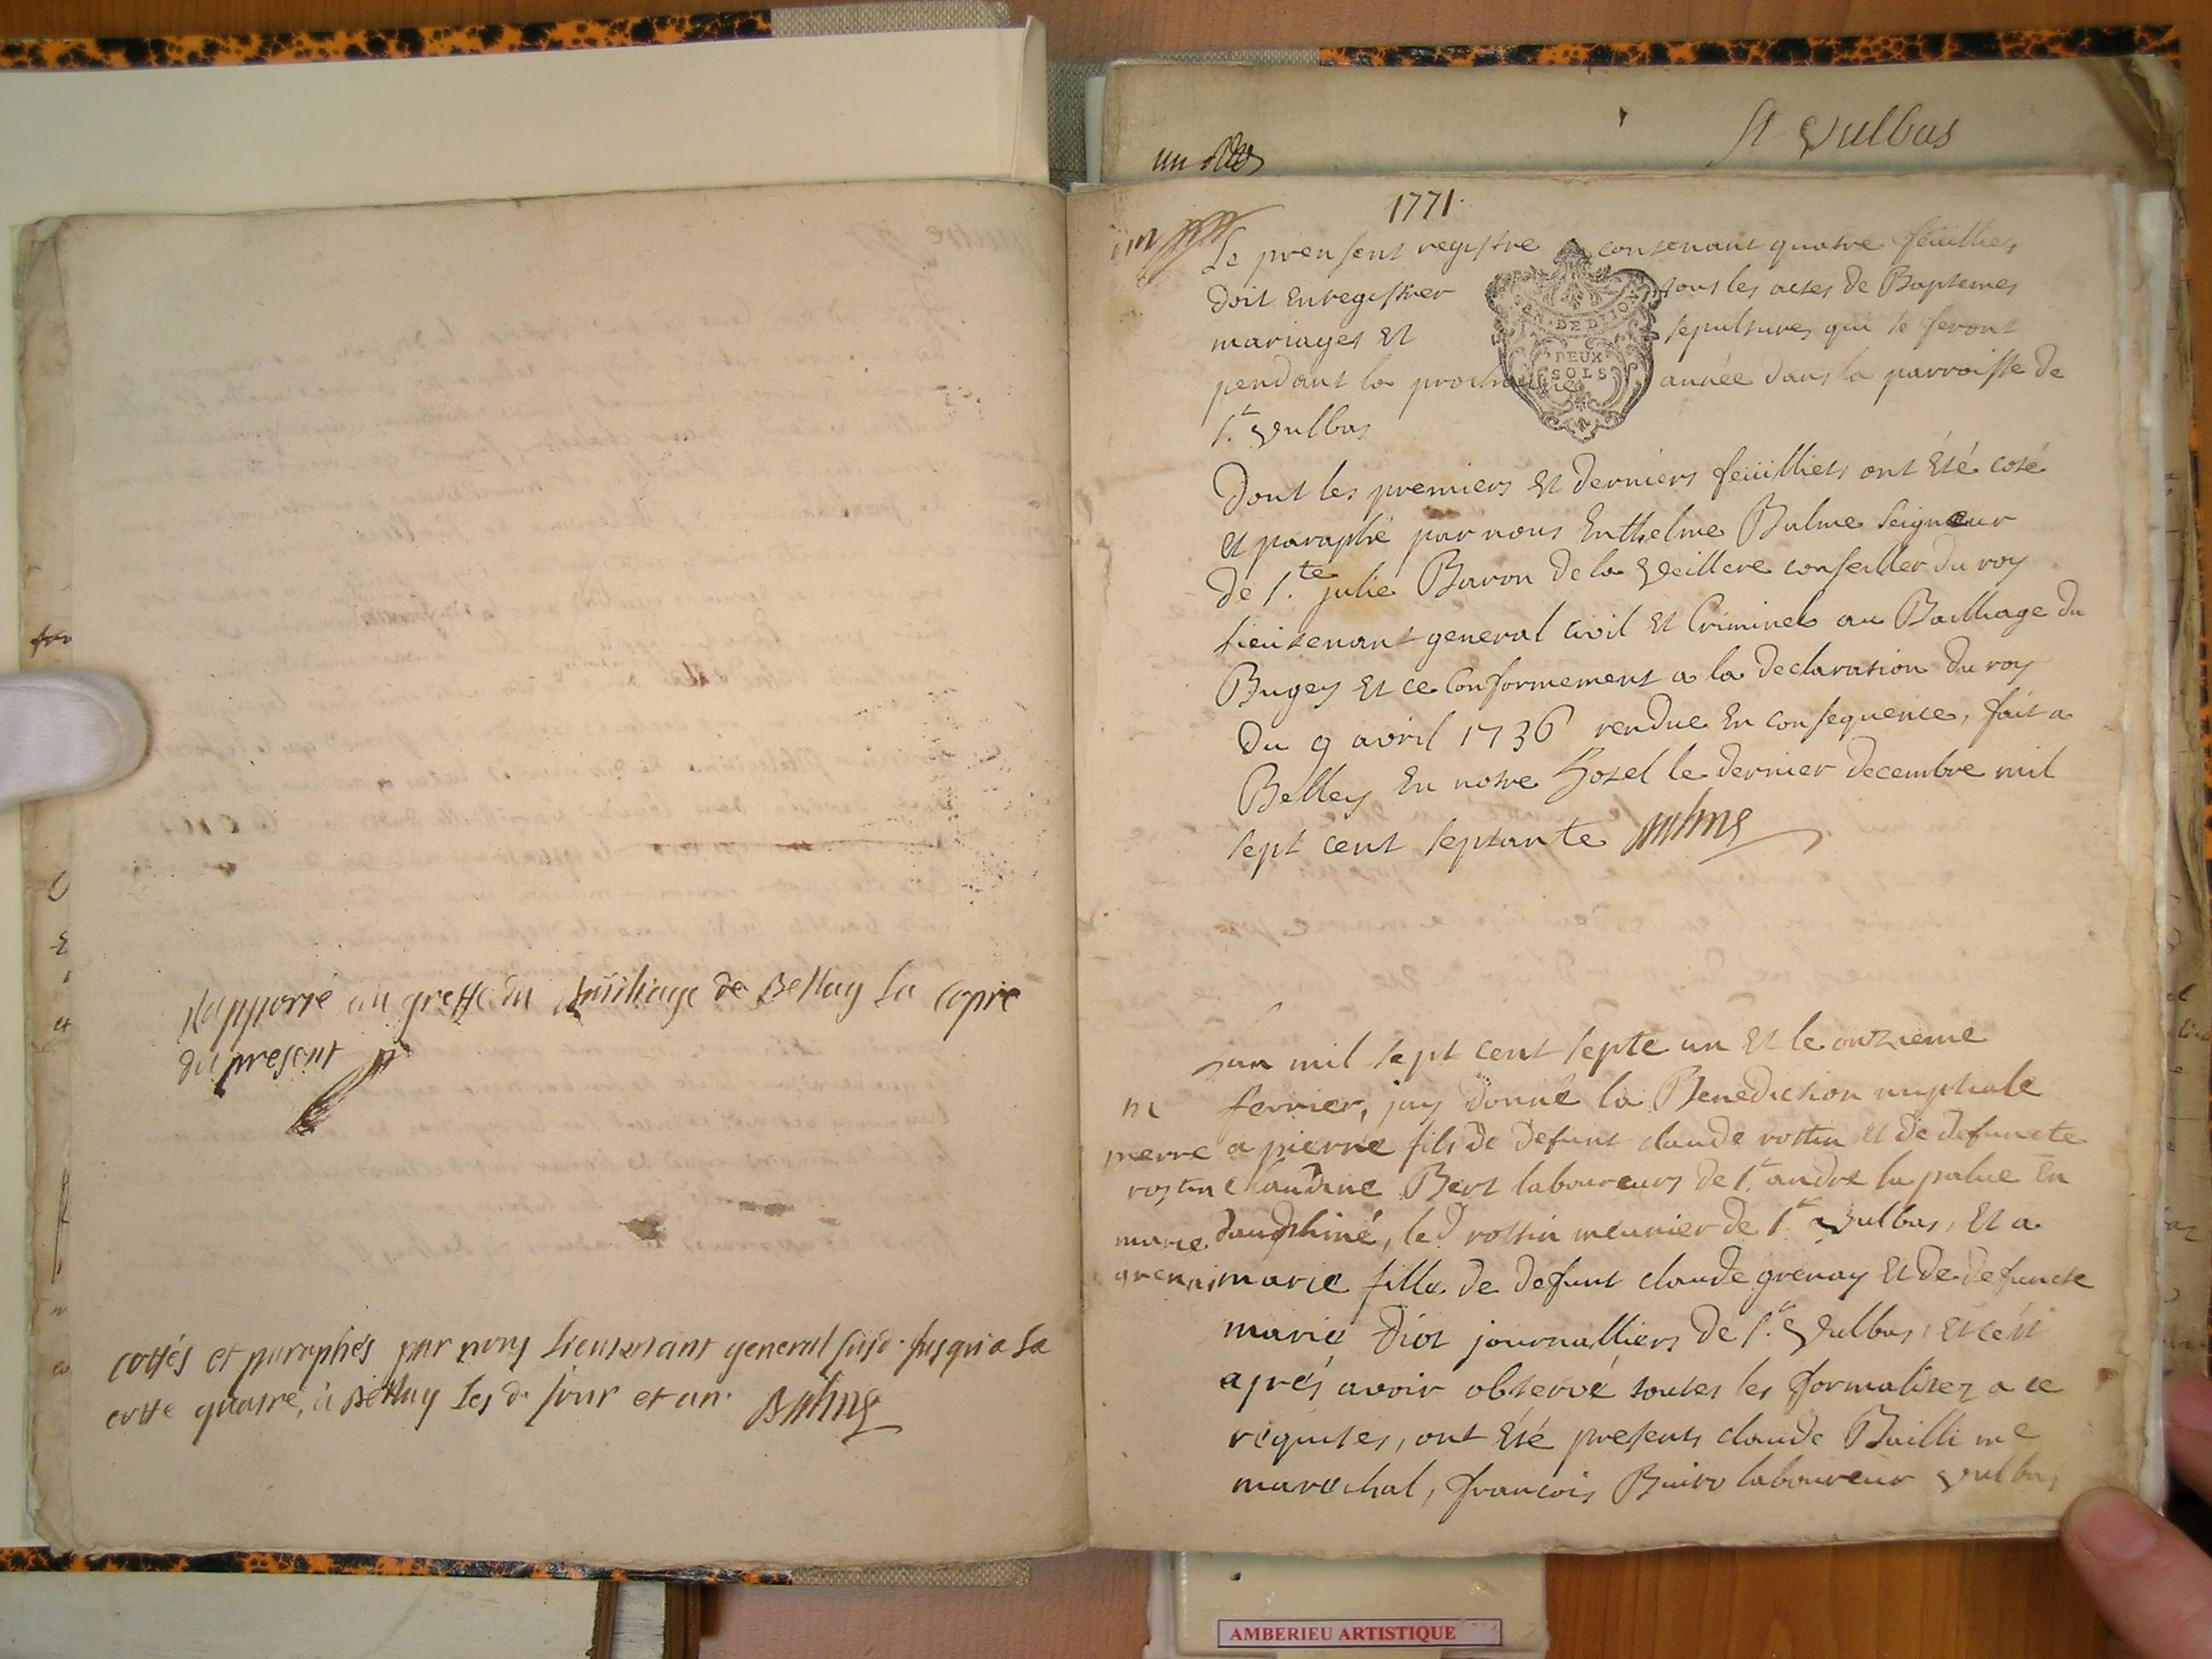 Rapporté au greffe du Bailliage de Bellay La Copie
du present
cottés et paraphés par nous Lieutenant general susd. jusqu'a La
cotte quatre, à Bellay Les d. jour et an. Balme
un
St Vulbas
1771.
un
Le prensent registre contenant quatre feuillies
doit Enregistrer tous les actes de Baptemes
mariages Et sepultures qui se feront
pendant la prochaine année dans la parroisse de
St. Vulbas
GEN. DE DIJON
DEUX
SOLS
Dont les premiers Et derniers feuilliets ont Eté coté
et paraphé par nous Enthelme Balme Seigneur
de Ste. julie Baron de la Veillere conseiller du roy
Lieutenant general Civil Et Criminel au Bailliage du
Bugey Et ce Conformement a la declaration du roy
du 9 avril 1736 rendue En consequence, fait a
Belley En notre hotel le dernier decembre mil
sept cent septante Balme
Lan mil sept cent septe un Et le onzieme
fevrier, jay donné la Benediction nuptiale
a pierre fils de defunt claude rostin et de defuncte
claudine Bert laboureurs de St. andre la palue En
dauphiné, led rostin meunier de St. Vulbas, Et a
marie fille de defunt claude grenay Et de defuncte
marie Diot journalliers de St. Vulbas, Et cest
aprés avoir observé toutes les formalitez a ce
requises, ont Eté presents claude Bailli me
marechal, francois Buiro laboureur Vulbas
m
pierre
rostin
marie
grenai
AMBERIEU ARTISTIQUE